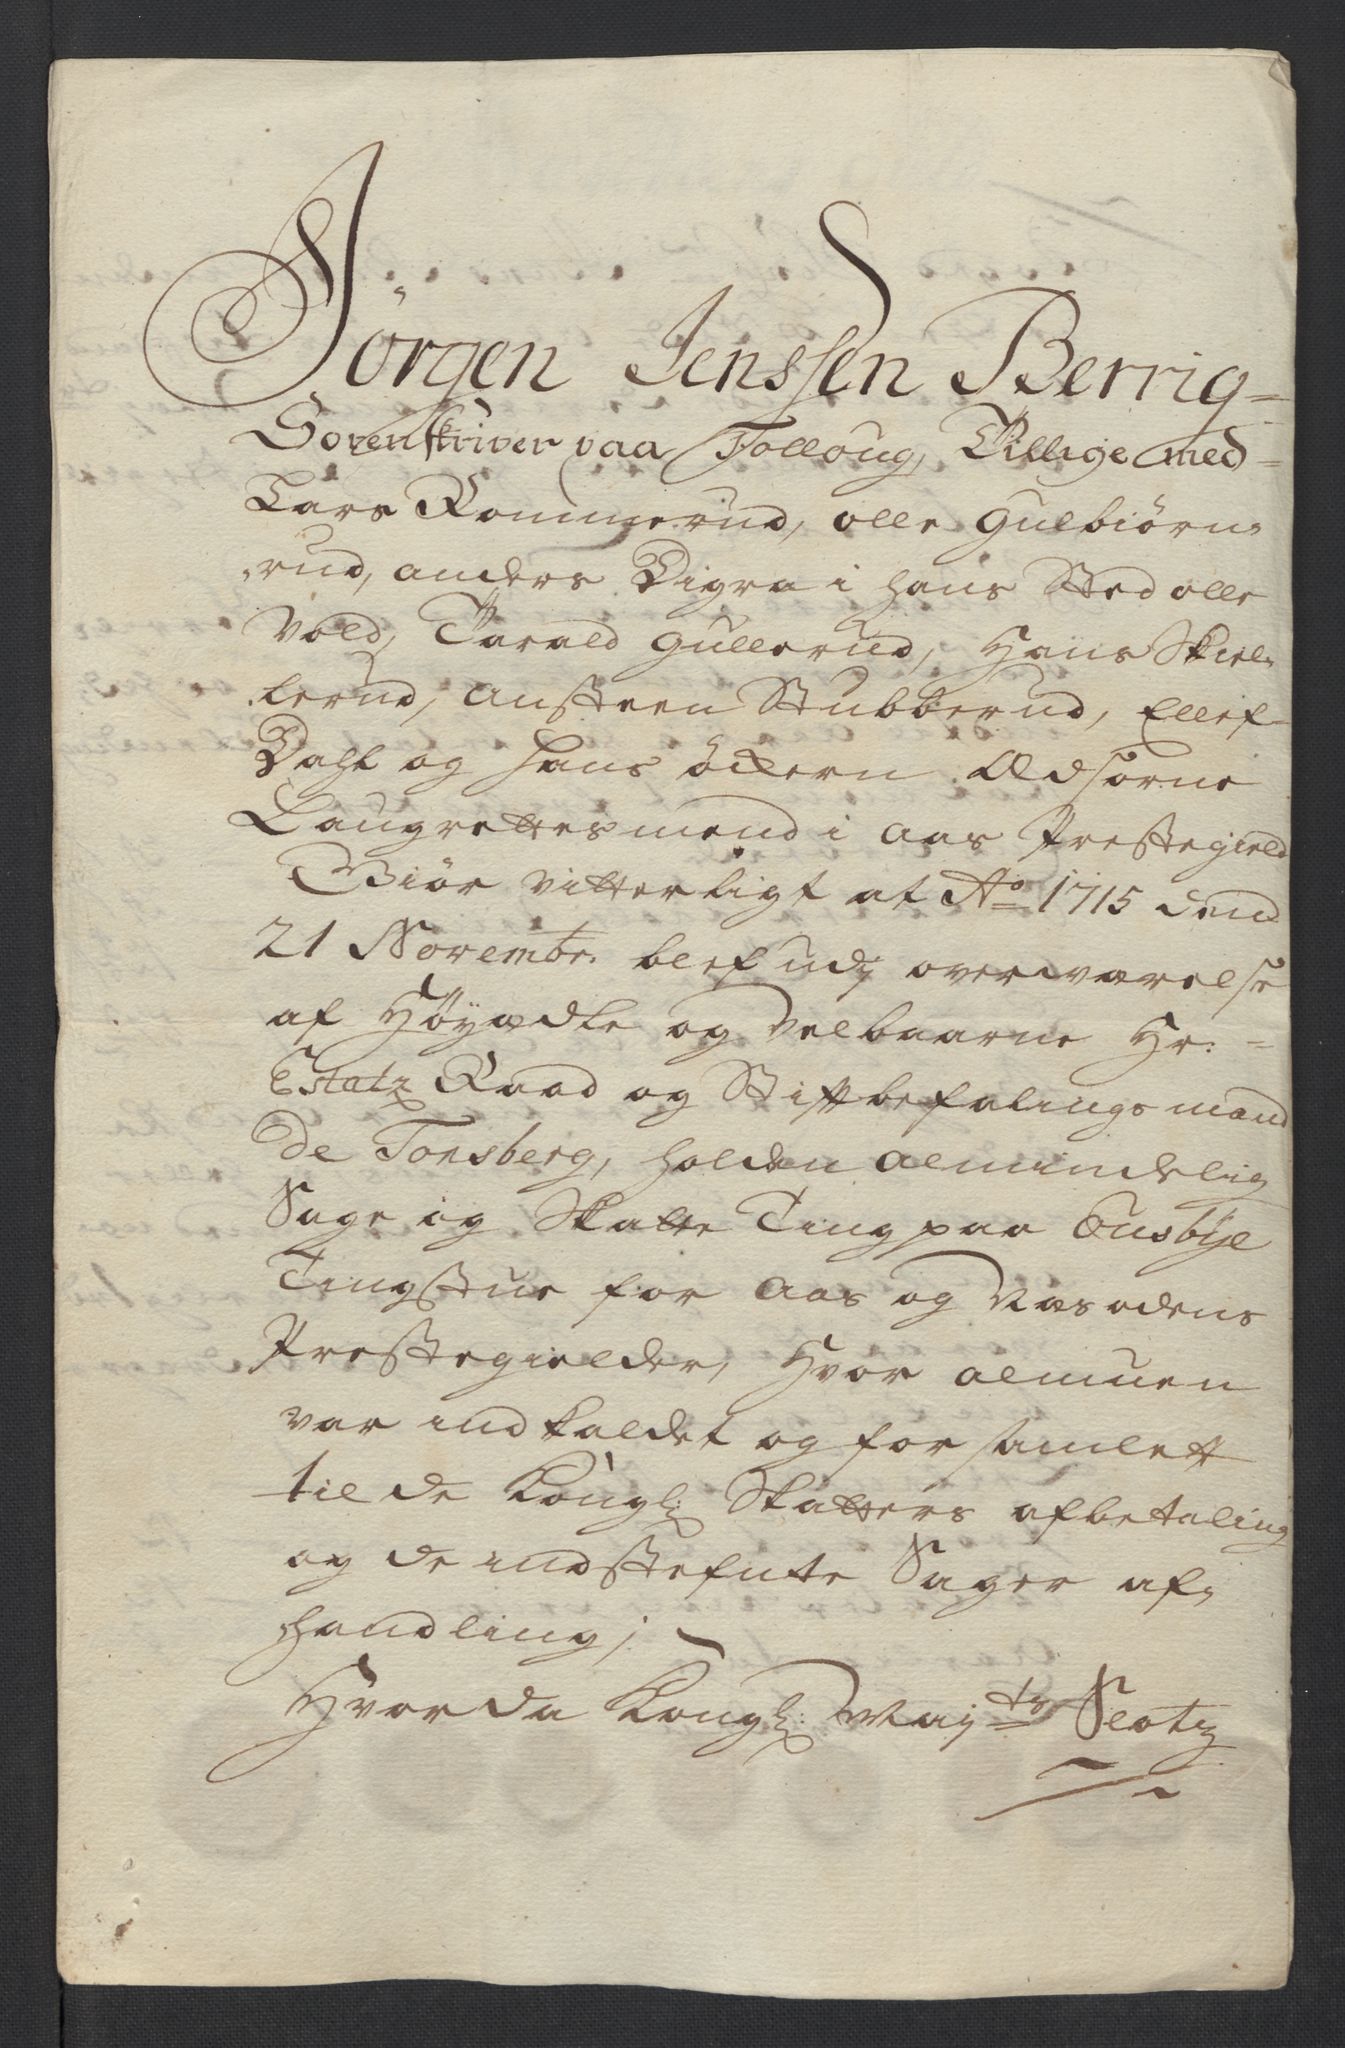 Jörgen Jenssen Berrig-
Sorenskriver paa Folloug, Tillige med-
Lars Rommerud, olle Gulbiörn-
-rud, anders Digra i hans Sted olle
Vold, Tarald Gullerud, Hans Skiel-
lerud, austeen Stubberud, Ellef
Dahl og hans öckern Edsorne
Laugrettesmend i Aas Prestegield
Giör vitterligt at Ao 1715 dend
21 Novembr. blef udj overværelse
af Höyædle og Velbaarne Hr: -
Estatz Raad og Stiftbefalingsmand
De Tonsberg, holden almindelig
Sage og Skatte Ting paa Ensbye
Tingstue for Aas og Næsodens
Prestegielder, Hvor almuen
var indkaldet og forsamlett
til de Kongl: Skatters afbetaling
og de indstefnte Sager af-
handling;
Hvor da Kongl: May:ts